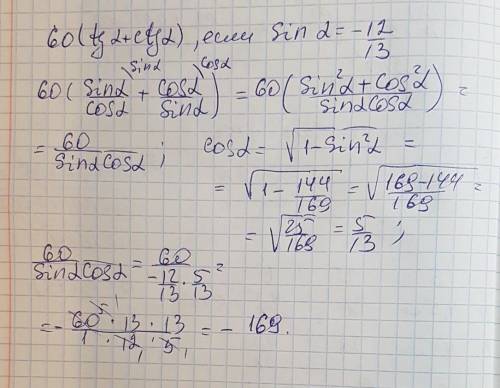 60(tgα+ctgα), если Sin α = -12/13
60(Sinα/Cosα \Sinα + Cosα/Sinα \Cosα) = 60(Sin²α+Cos²α/SinαCosα) =
= 60/SinαCosα; Cosα = √1-Sin²α =
= √1-144/169 = √169-144/169 =
= √25/169 = 5/13;
60/SinαCosα = 60/-12/13·5/13 =
= -60·13·13/1·12·5 = -169.